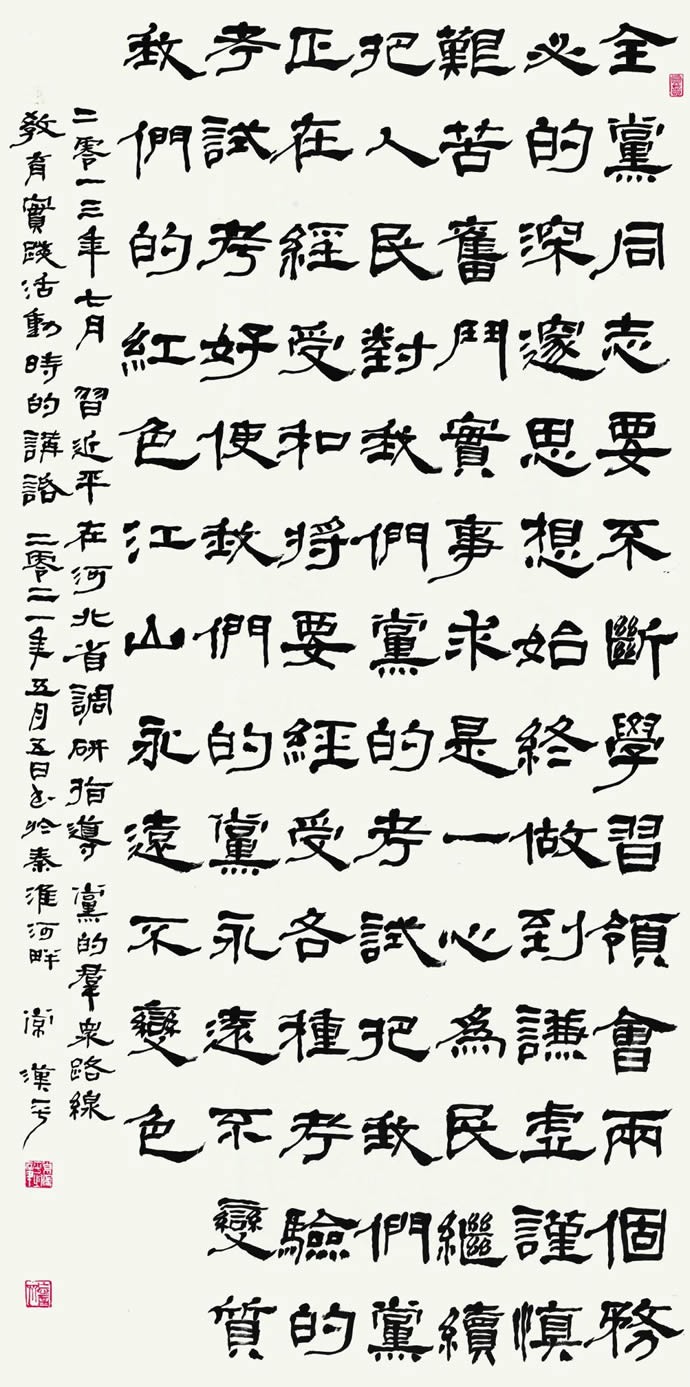 全黨同志要不斷學習領會兩個務
必的深邃思想始終做到謙虛謹慎
艱苦奮鬥實事求是一心為民繼續
把人民對我們黨的考試把我們黨
正在經受和將要經受各種考驗的
考試考好使我們的黨永遠不變質
我們的紅色江山永遠不變色
二零一三年七月 習近平在河北省調研指導黨的羣衆路線
教育實踐活動時的講話 二零二一年五月五日書於秦淮河畔